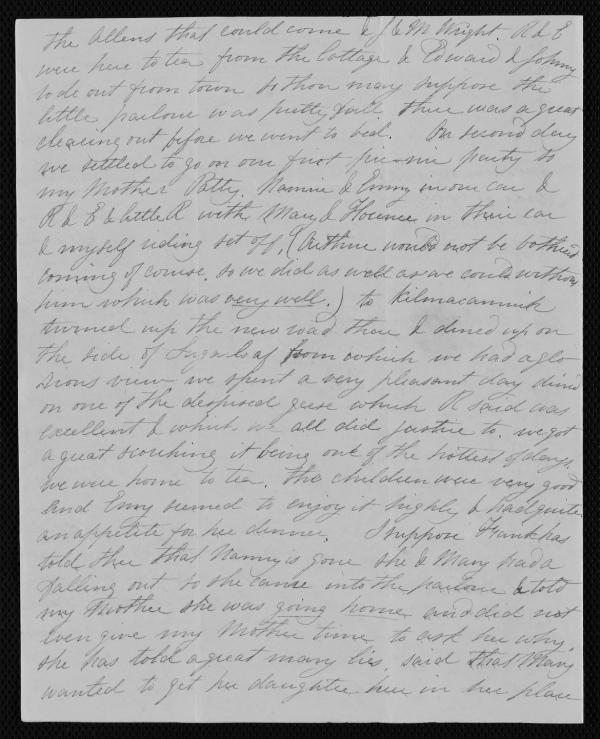 the Allens that could come & J & M Wright. R & E
were here to tea from the Cottage & Edward & Johny
rode out from town so thou may suppose the
little parlour was pretty full there was a great
clearing out before we went to bed. On second day
we settled to go on our first pic-nic party so
my Mother Patty, Nannie & Emmy in one car &
R & E & little R with Mary & Florence in their car
& myself riding set off, (Arthur would not be bothered
coming of course, so we did as well as we could without
him which was very well.) to Kilmacannick
turned up the new road there & dined up on
the side of Sugarloaf from which we had a glo-
rious view we spent a very pleasant day dined
on one of the despised geese which R said was
excellent & which we all did justice to. we got
a great scorching it being one of the hottest of days.
we were home to tea. The children were very good
and Emmy seemed to enjoy it highly & had quite
an appetite for her dinner. I suppose Frank has
told thee that Nanny is gone she & Mary had a
falling out so she came into the parlour & told
my Mother she was going home and did not
even give my Mother time to ask her why,
she has told a great many lies, said that Mary
wanted to get her daughter here in her place